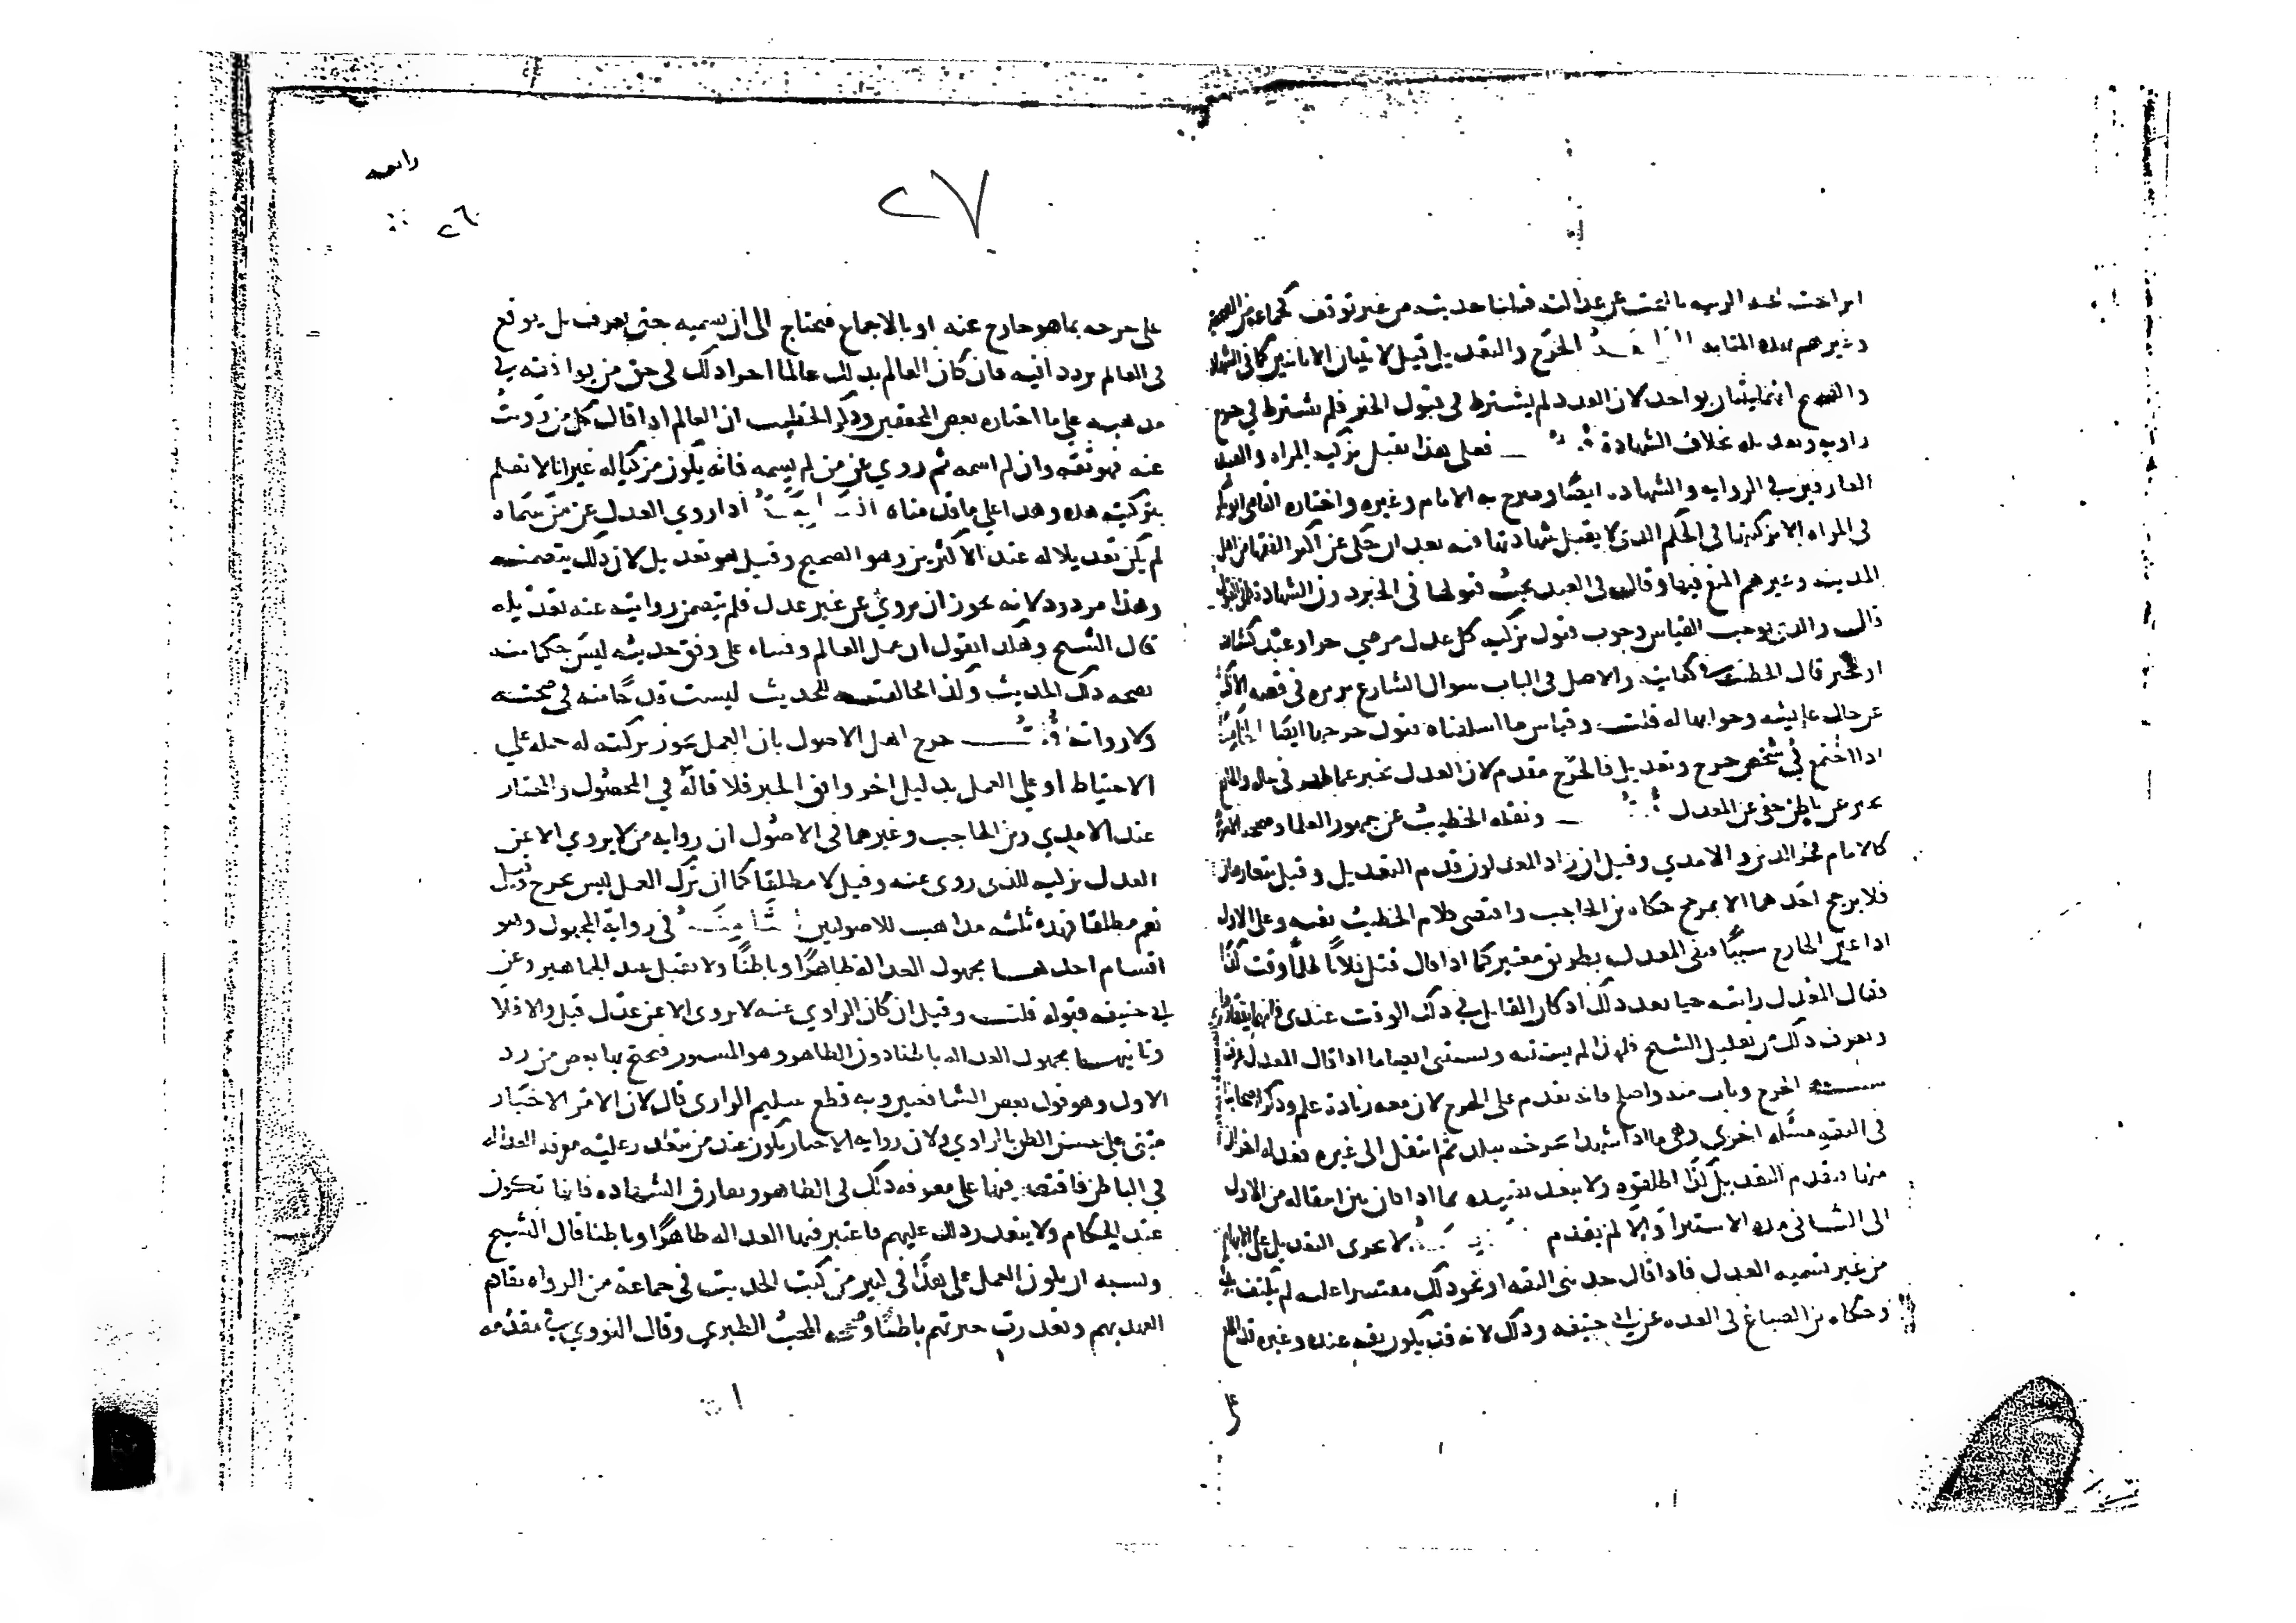 ٢٧
٢٦
انزاحت عنه الريبه بالبحث عن عدالته قبلنا حديثه من غير توقف كجماعة من الصحيح
وغيرهم بهذه المثابه الرابعة الجرح والتعديل قيل لا يثبتان الا باثنين كما في الشهادة
والصحيح انهما يثبتان بواحد لان العدد لم يشترط في قبول الخبر فلم يشترط في جرح
راويه وتعديله بخلاف الشهادة فعلى هذا تقبل تزكيه المراه والعبد
العارفين في الروايه والشهاده ايضًا وصرح به الامام وغيره واختاره القاضي ابو بكر
في المراه الا تزكيتها في الحكم الذي لا يقبل شهادتها فيه بعد ان حكى عن اكثر الفقها من اهل
المدينه وغيرهم المنع فيها وقال في العبد يجب قبولها في الخبر دون الشهادة
قال والذي يوجب القياس وجوب قبول تزكيه كل عدل مرضي حر او عبد
او مخبر قال الخطيب في كفايته والاصل في الباب سوال الشارع بريره في قصه الافك
عن حال عايشه وجوابها له قلت وقياس ما اسلفناه قبول جرحها ايضا الخامسة
اذا اجتمع في شخص جرح وتعديل فالجرح مقدم لان العدل يخبر عما ظهر في حاله والجارح
يخبر عن باطن خفي عن المعدل ونقله الخطيب عن جمهور العلما وصححه
كالامام فخر الدين والامدي وقيل ان زاد المعدلون قدم التعديل وقيل يتعارضان
فلا يرجح احدهما الا بمرجح حكاه بن الحاجب واقتضى كلام الخطيب نفيه وعلى الاول
اذا عين الجارح سببًا ونفى المعدل بطريق معتبر كما اذا قال قتل فلانًا ظلمًا وقت كذا
فقال المعدل رايته حيا بعد ذلك او كان القاتل في ذلك الوقت عندي فانهما يتعارضان
ويعرف ذلك من تعليل الشيخ فلهذا لم يستثنه ويستثنى ايضا ما اذا قال المعدل عرفت
سبب الجرح وتاب منه واصلح فانه يقدم على الجرح لان معه زيادة علم وذكر اصحابنا
في الفقه مسئله اخرى وهي ما اذا شهدا بجرحه ببلد ثم انتقل الى غيره فعدله اخران
منها فيقدم التعديل كذا اطلقوه ولا يبعد تقييده بما اذا كان بين انتقاله من الاول
الى الثاني مده الاستبرا والا لم يقدم السادسة لا يجزى التعديل على الابهام
من غير تسميه المعدل فاذا قال حدثني الثقه او نحو ذلك مقتصرا عليه لم يكتف به
وحكاه بن الصباغ في العده عن ابي حنيفه وذلك لانه قد يكون ثقه عنده وغيره قد اطلع
على جرحه بما هو جارح عنده او بالاجماع فيحتاج الى ان يسميه حتى يعرف بل يوقع
في العالم تردد افيه فان كان القائل بذلك عالما اجزا ذلك في حق من يوافقه في
مذهبه على ما اختاره بعض المحققين وذكر الخطيب ان العالم اذا قال كل من رويت
عنه فهو ثقه وان لم اسمه ثم روى عن من لم يسمه فانه يكون مزكيا له غير انا لا نعمل
بتزكيته هذه وهذا على ما قدمناه السابعة اذا روى العدل عن من سماه
لم يكن تعديلا له عند الاكثرين وهو الصحيح وقيل هو تعديل لان ذلك يتضمنه
وهذا مردود لانه يجوز ان يروي عن غير عدل فلم يتضمن روايته عنه تعديله
قال الشيخ وهكذا نقول ان عمل العالم وفتياه على وفق حديث ليس حكما منه
بصحه ذلك الحديث وكذا مخالفته للحديث ليست قدحًا منه في صحته
ولا رواته قلت صرح اهل الاصول بان العمل يجوز تزكيته له حمله على
الاحتياط او على العمل بدليل اخر وافق الخبر فلا قاله في المحصول والمختار
عند الامدي وبن الحاجب وغيرهما في الاصول ان روايه من لا يروي الا عن
العدل تزكيه للذي روى عنه وقيل لا مطلقا كما ان ترك العمل ليس بجرح وقيل
نعم مطلقا فهذه ثلثه مذاهب للاصوليين الثامنة في رواية المجهول وهو
اقسام احدها مجهول العداله ظاهرًا وباطنًا ولا تقبل عند الجماهير وعن
ابي حنيفه قبوله قلت وقيل ان كان الراوي عنه لا يروى الا عن عدل قبل والا فلا
وثانيها مجهول العداله باطنا دون الظاهر وهو المستور فيحتج بها بعض من رد
الاول وهو قول بعض الشافعيين وبه قطع سليم الرازي قال لان الامر الاخبار
مبني على حسن الظن بالراوي ولان روايه الاخبار تكون عند من يتعذر عليه معرفه العداله
في الباطن فاقتصر فيها على معرفه ذلك في الظاهر وتفارق الشهاده فانها تكون
عند الحكام ولا يتعذر ذلك عليهم فاعتبر فيها العداله ظاهرًا وباطنا قال الشيخ
ويشبه ان يكون العمل على هذا في كثير من كتب الحديث في جماعة من الرواه تقادم
العهد بهم وتعذرت خبرتهم باطنًا وصححه المحب الطبري وقال النووي في مقدمه